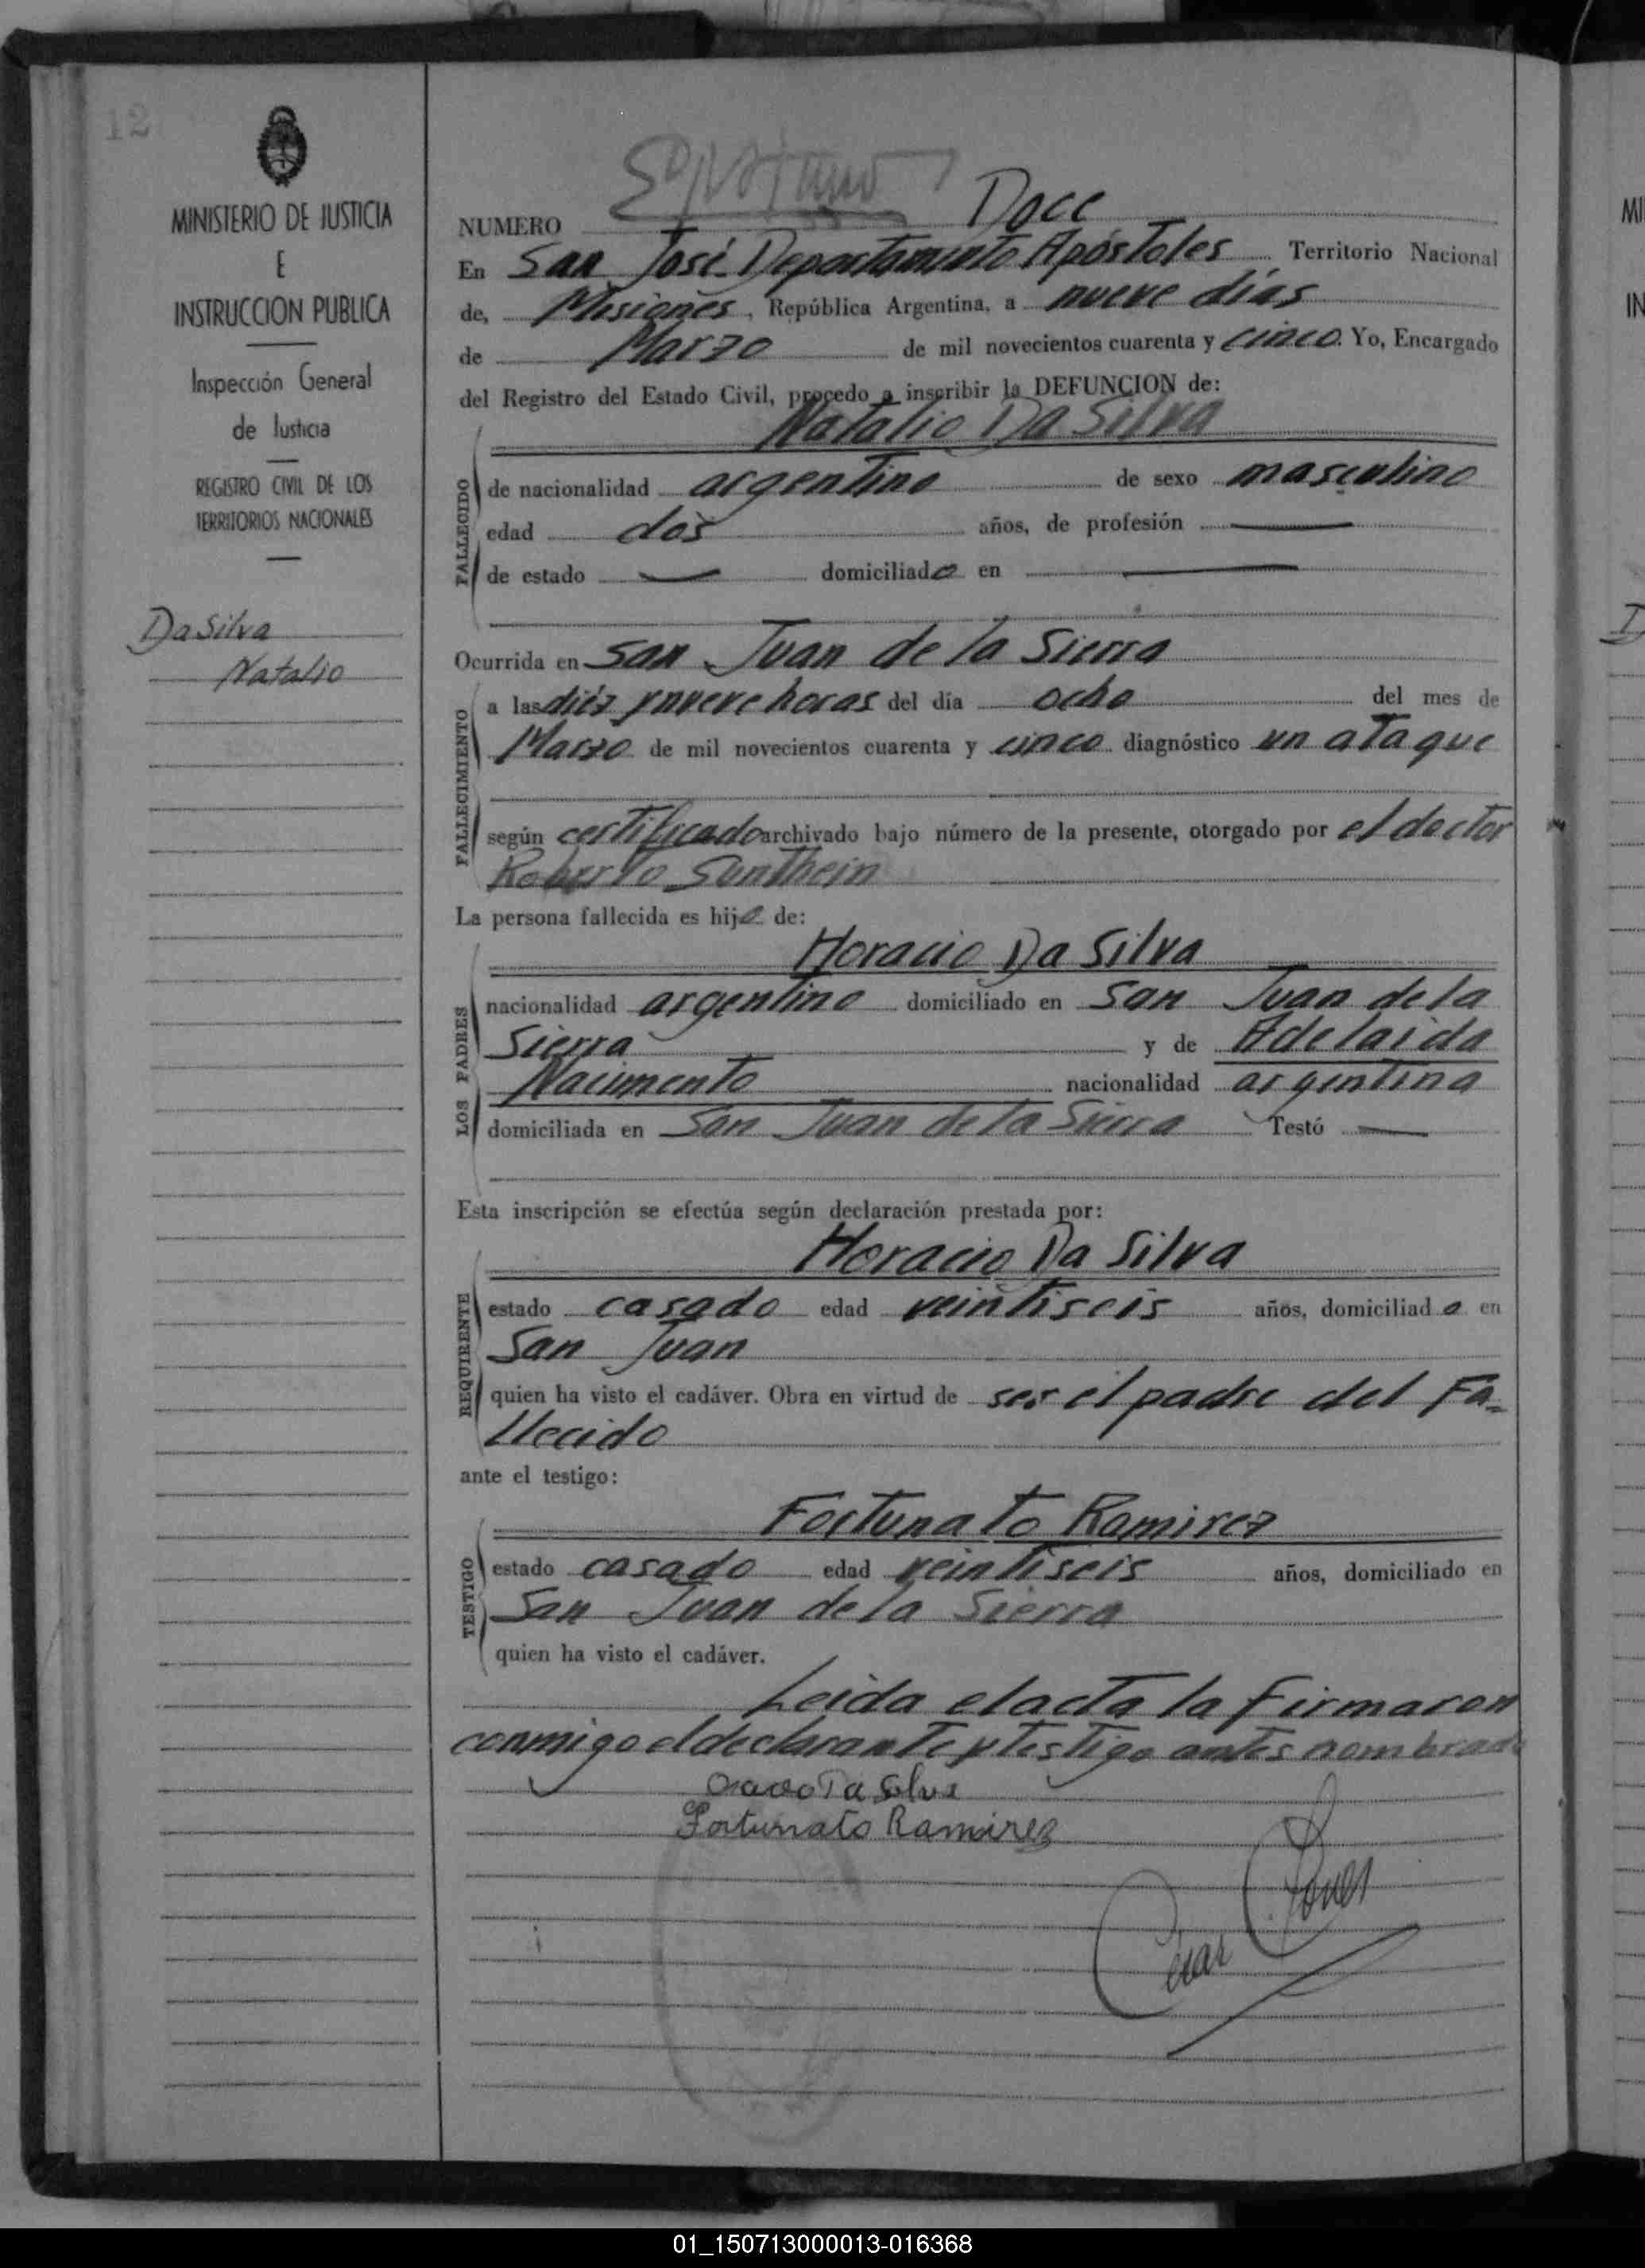 12
MINISTERIO DE JUSTICIA
E
INSTRUCCION PUBLICA
Inspección General
de Justicia
REGISTRO CIVIL DE LOS
TERRITORIOS NACIONALES
Da Silva
Natalio
NUMERO Doce
En San José Departamento Apóstoles Territorio Nacional
de, Misiones, República Argentina, a nueve días
de Marzo de mil novecientos cuarenta y cinco. Yo, Encargado
del Registro del Estado Civil, procedo a inscribir la DEFUNCION de:
Natalio Da Silva
FALLECIDO
de nacionalidad argentino de sexo masculino
edad dos años, de profesión —
de estado — domiciliado en —
Ocurrida en San Juan de la Sierra
FALLECIMIENTO
a las diéz y nueve horas del día ocho del mes de
Marzo de mil novecientos cuarenta y cinco diagnóstico un ataque
según certificado archivado bajo número de la presente, otorgado por el doctor
Roberto Sunthein
La persona fallecida es hijo de:
Horacio Da Silva
LOS PADRES
nacionalidad argentino domiciliado en San Juan de la
Sierra y de Adelaida
Nacimento nacionalidad argentina
domiciliada en San Juan de la Sierra Testó —
Esta inscripción se efectúa según declaración prestada por:
Horacio Da Silva
REQUIRENTE
estado casado edad veintiseis años, domiciliado en
San Juan
quien ha visto el cadáver. Obra en virtud de ser el padre del Fa-
llecido
ante el testigo:
Fortunato Ramirez
TESTIGO
estado casado edad veintiseis años, domiciliado en
San Juan de la Sierra
quien ha visto el cadáver.
Leida el acta la firmaron
conmigo el declarante y testigo antes nombrado
Da Silva
Fortunato Ramirez
Cesar
01_150713000013-016368